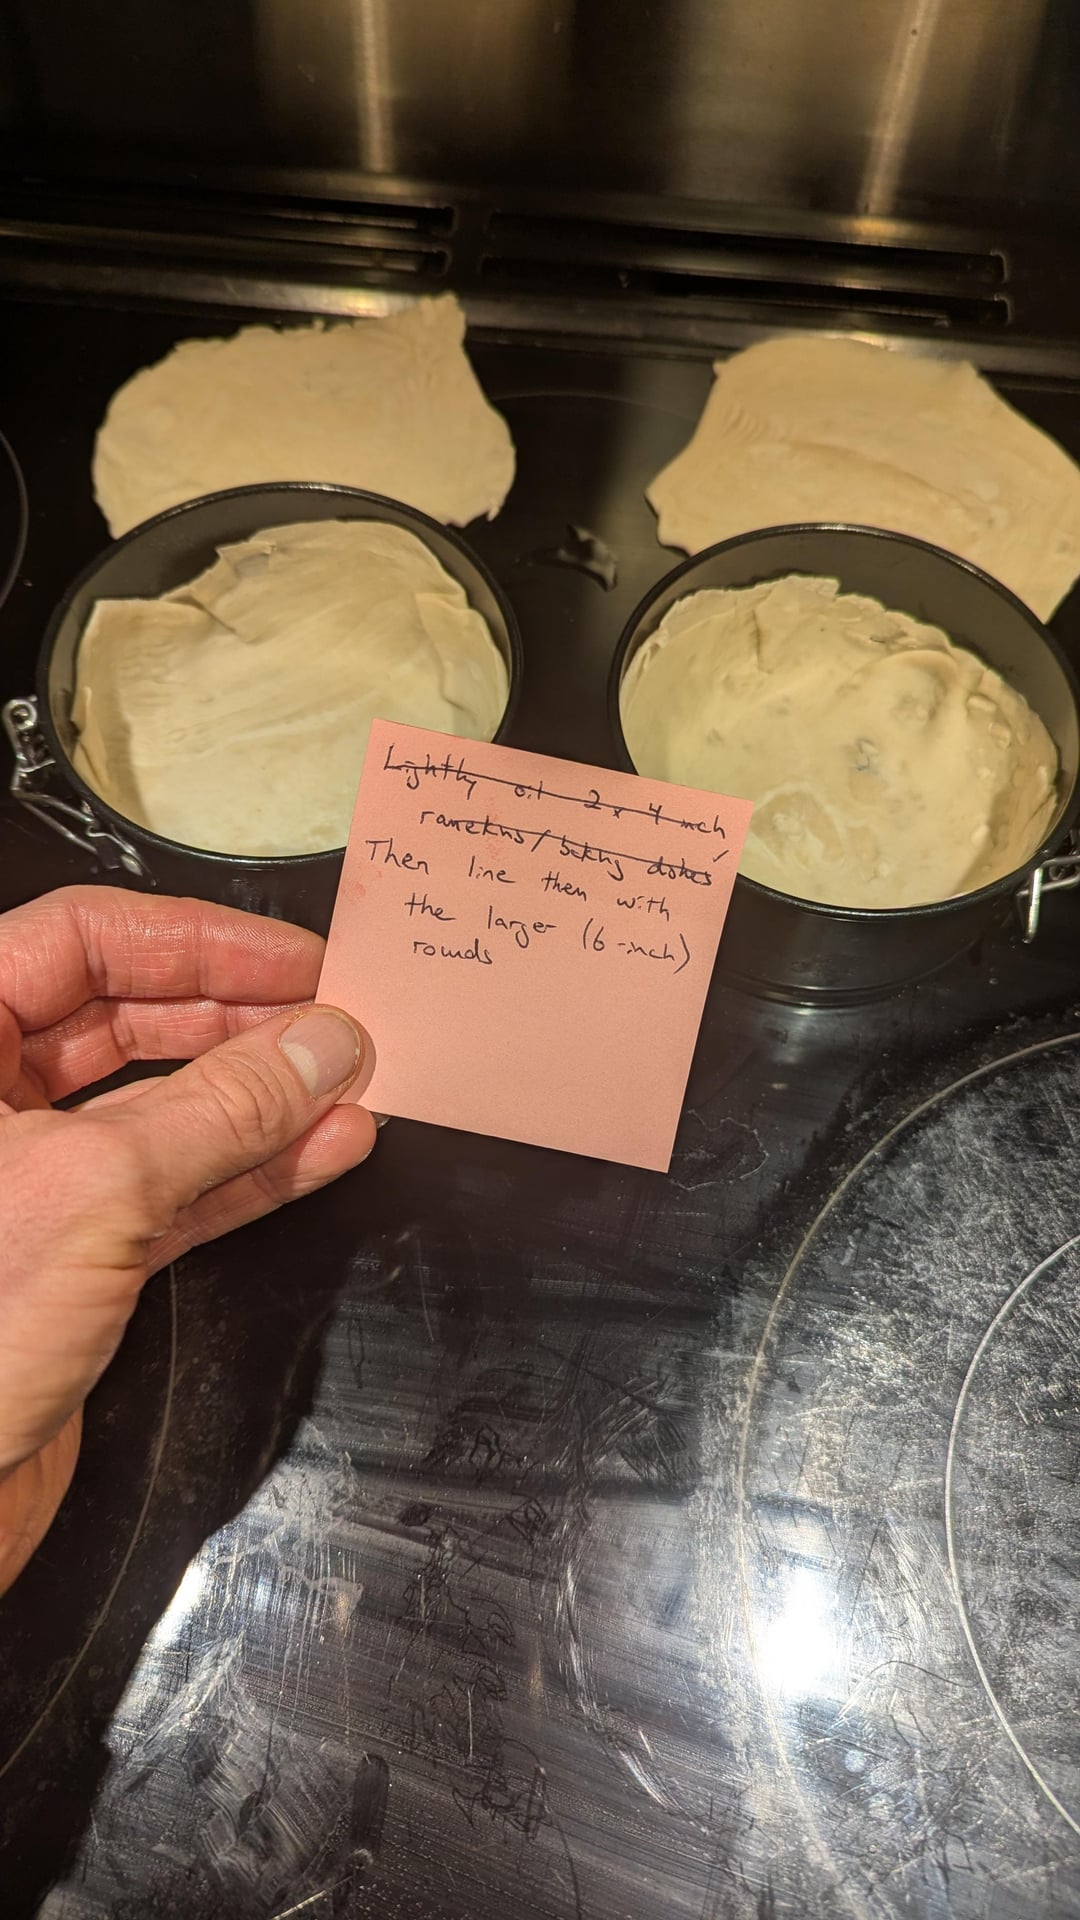 Lightly oil 2 x 4 inch
ramekins/baking dishes ✓
Then line them with
the larger (6-inch)
rounds